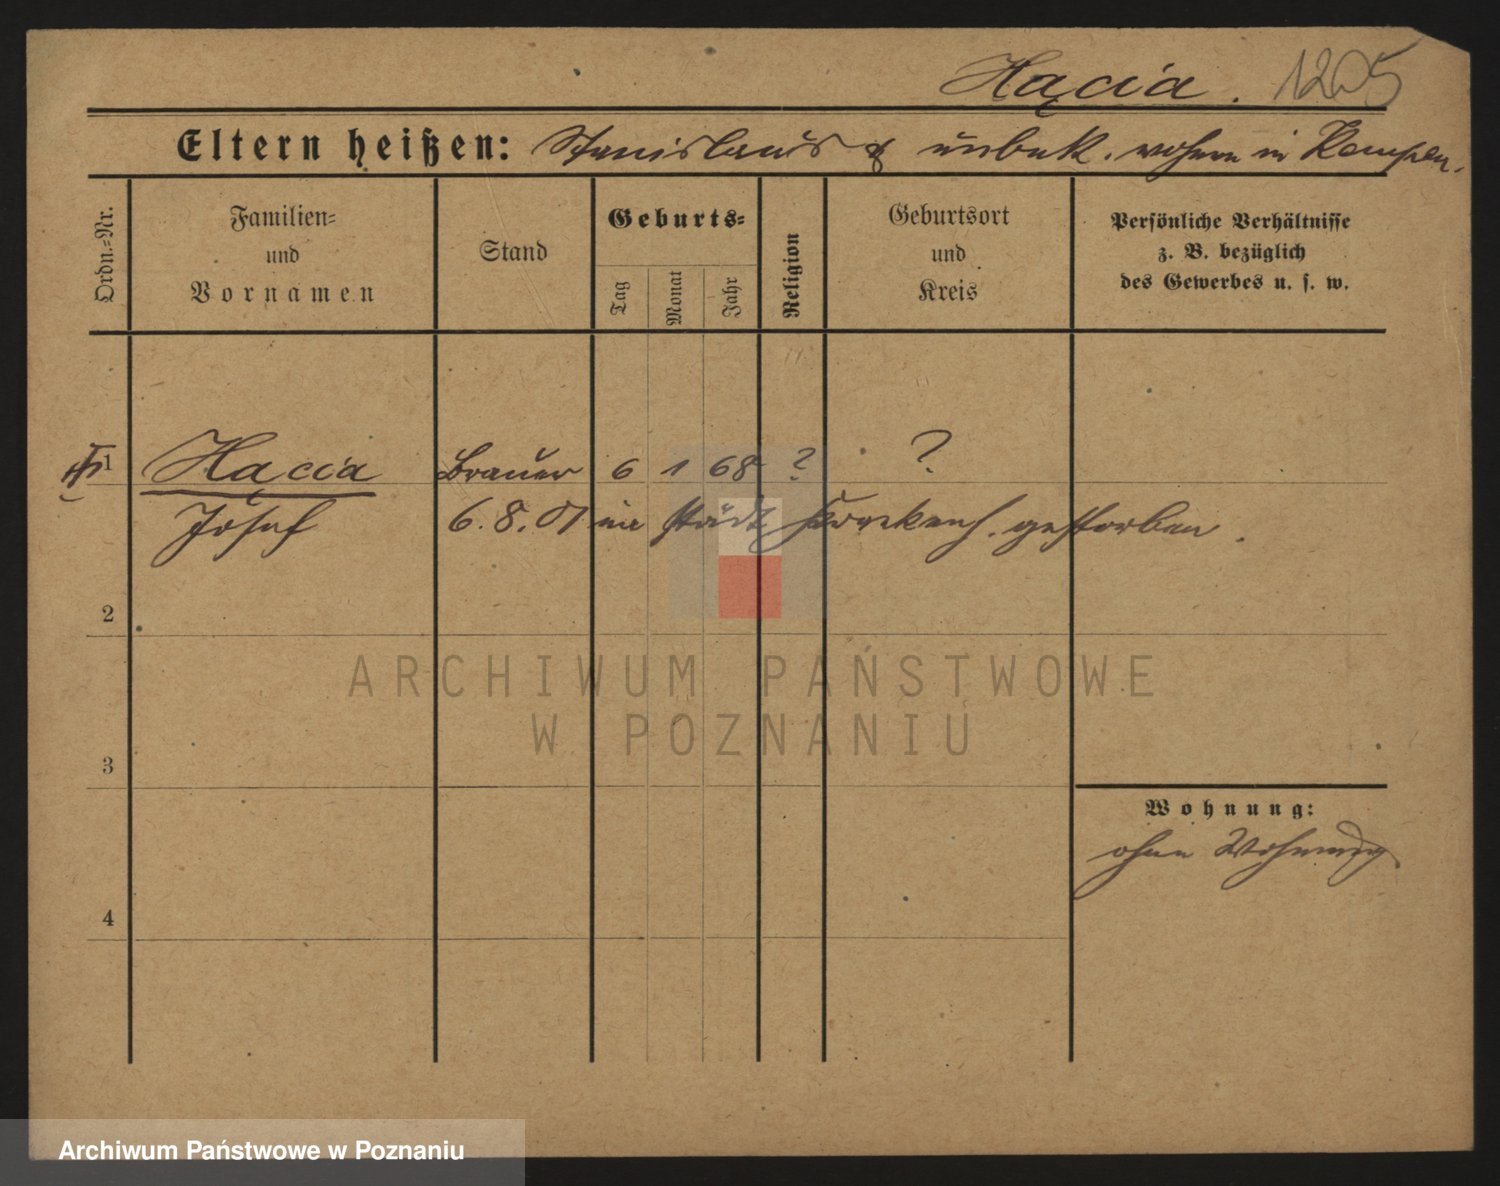 Hącia. 1205
Eltern heißen: Stanislaus & unbek. wohnen in Kempen.
Ordn.=Nr.
Familien=
und
Vornamen
Stand
Geburts=
Tag
Monat
Jahr
Religion
Geburtsort
und
Kreis
Persönliche Verhältnisse
z. B. bezüglich
des Gewerbes u. s. w.
1 Hącia Brauer 6 1 68 ? ?
Josef 6. 8. 01 im städt. Krankenh. gestorben.
2
ARCHIWUM PAŃSTWOWE
W POZNANIU
3
Wohnung:
ohne Wohnung
4
Archiwum Państwowe w Poznaniu